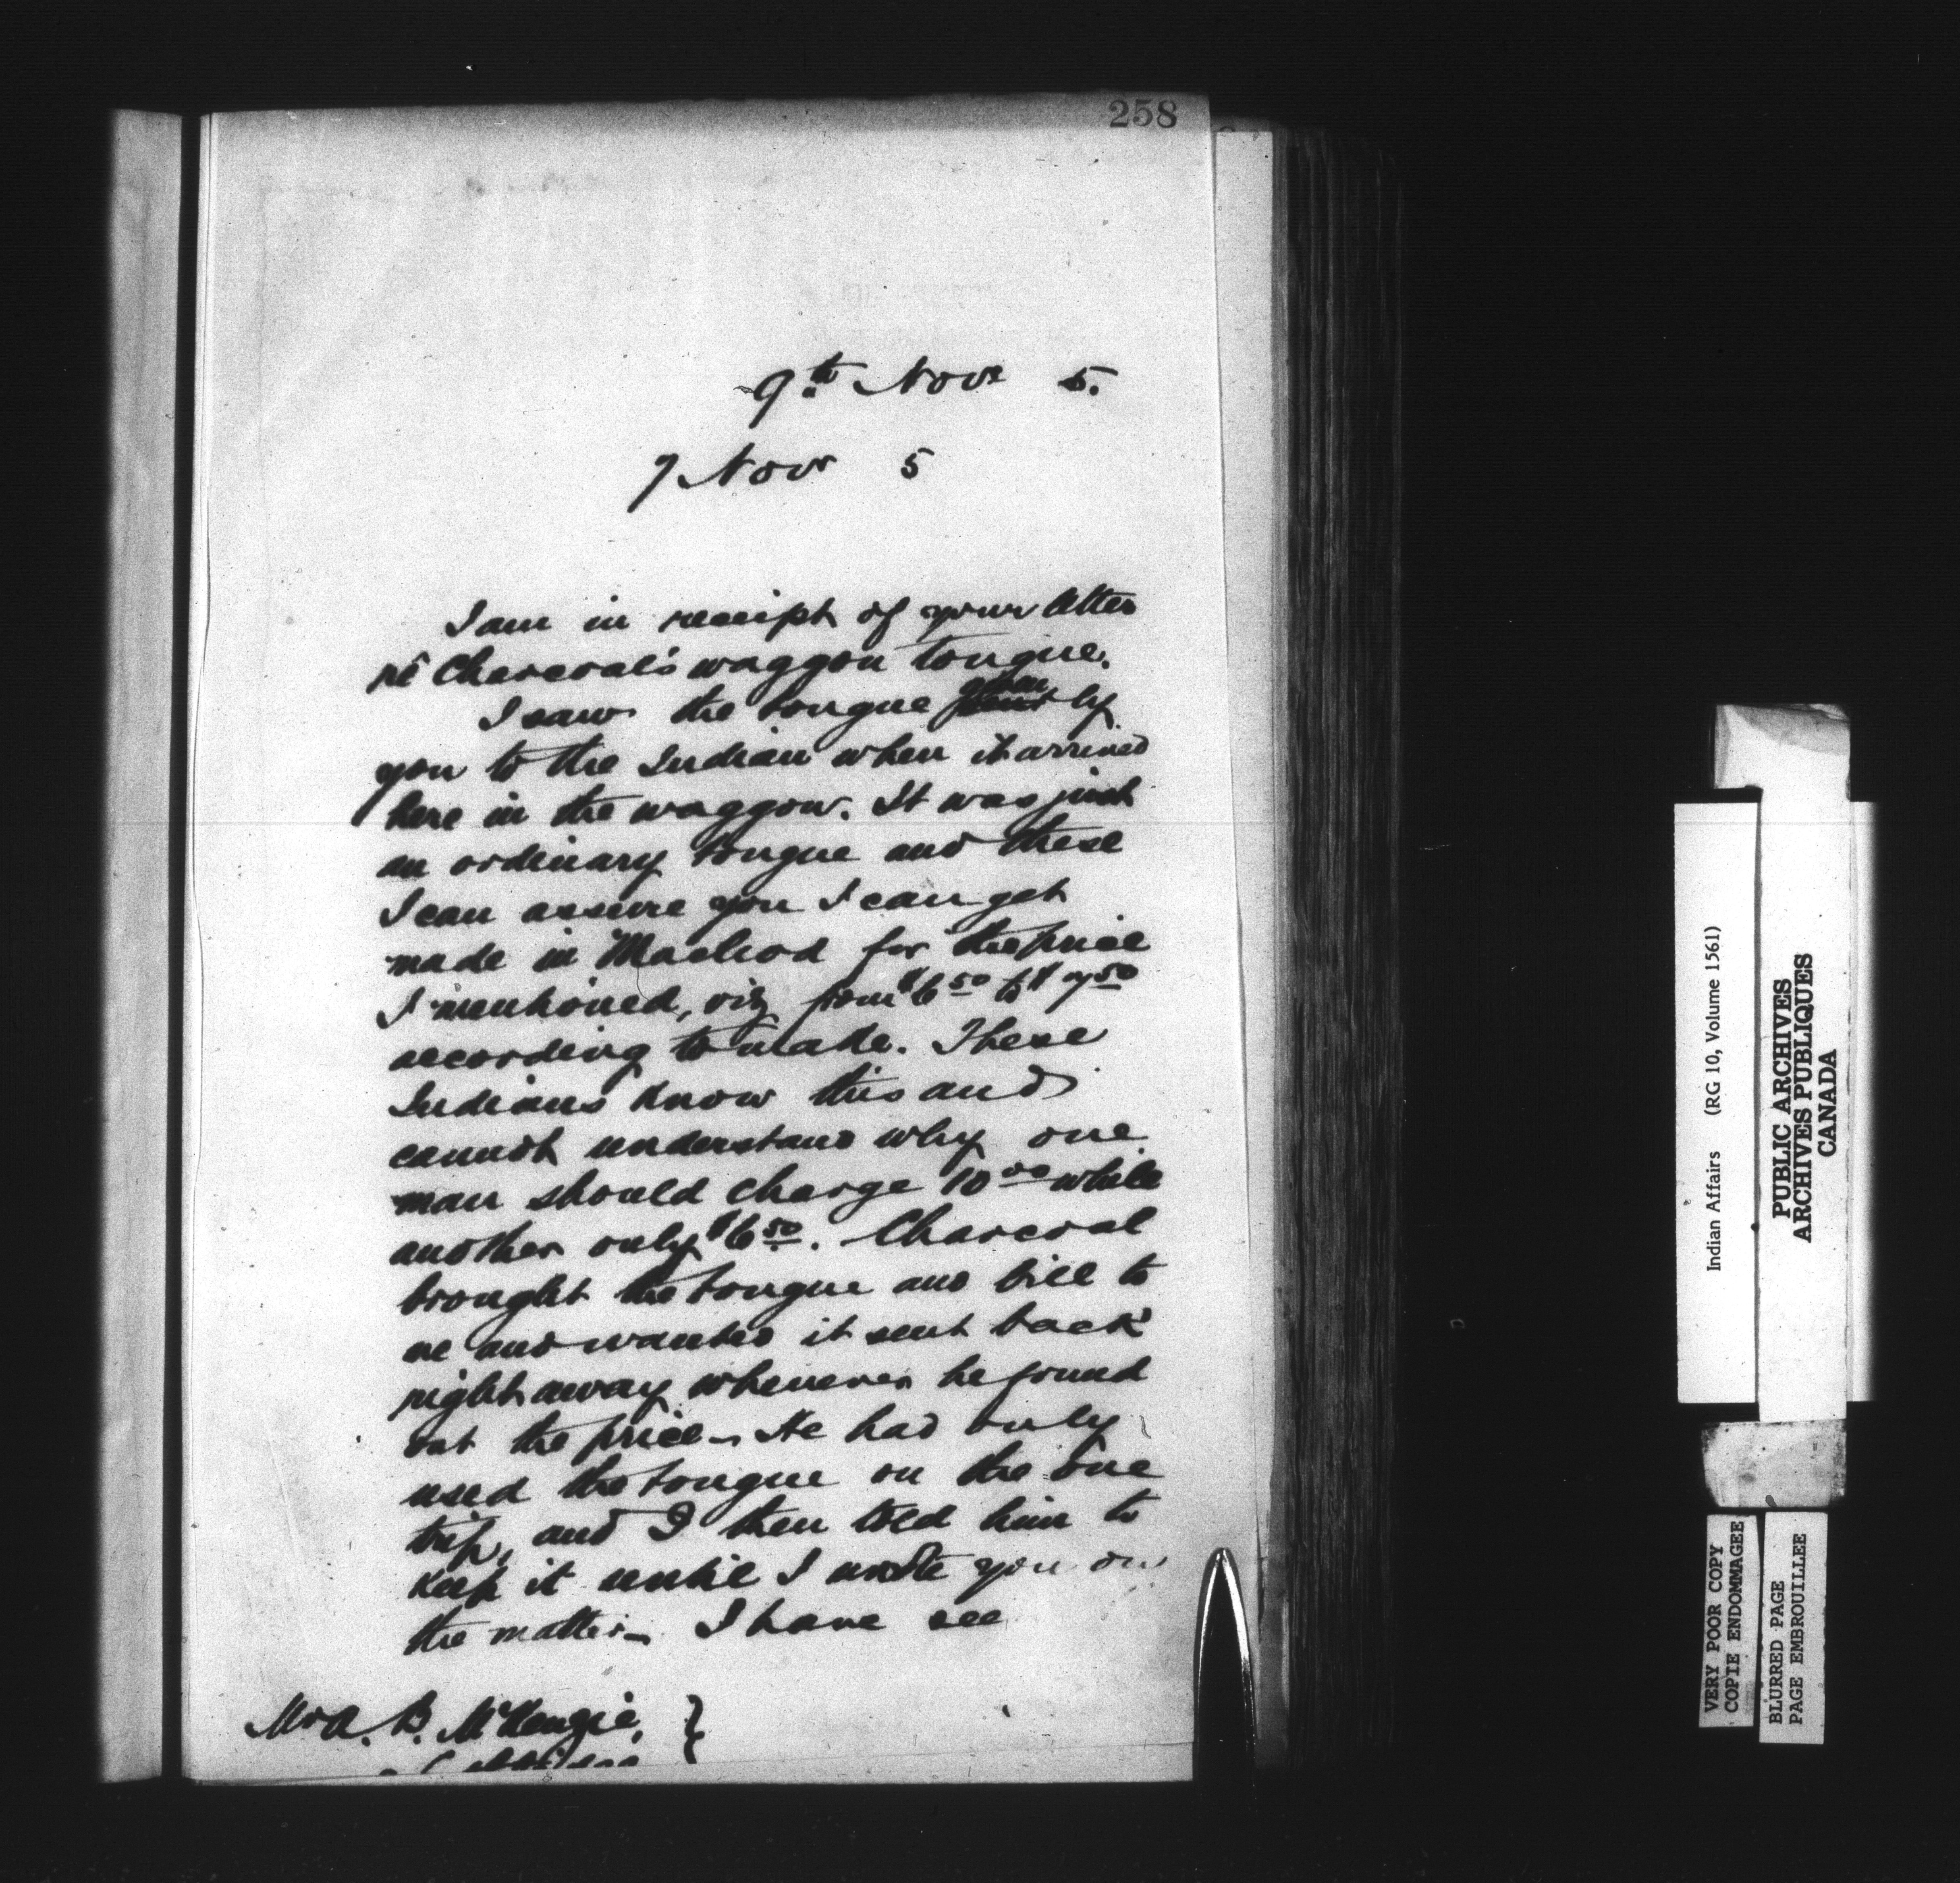 258
9th Nov 5.
7 Nov 5
I am in receipt of your letter
re Charcoal's waggon tongue.
I saw the tongue given by
you to the Indian when it arrived
here in the waggon. It was just
an ordinary tongue and these
I can assure you I can get
made in Macleod for the price
I mentioned, viz from $6.50 to $7.50
according to make. These
Indians know this and
cannot understand why one
man should charge 10.00 while
another only $6.50. Charcoal
brought the tongue and bill to
me and wanted it sent back
right away whenever he found
out the price - He had only
used the tongue on the one
trip, and I then told him to
keep it until I wrote you on
the matter - I have see
Mr A. B. McKenzie, }
Indian Affairs (RG 10, Volume 1561)
PUBLIC ARCHIVES
ARCHIVES PUBLIQUES
CANADA
VERY POOR COPY
COPIE ENDOMMAGEE
BLURRED PAGE
PAGE EMBROUILLEE